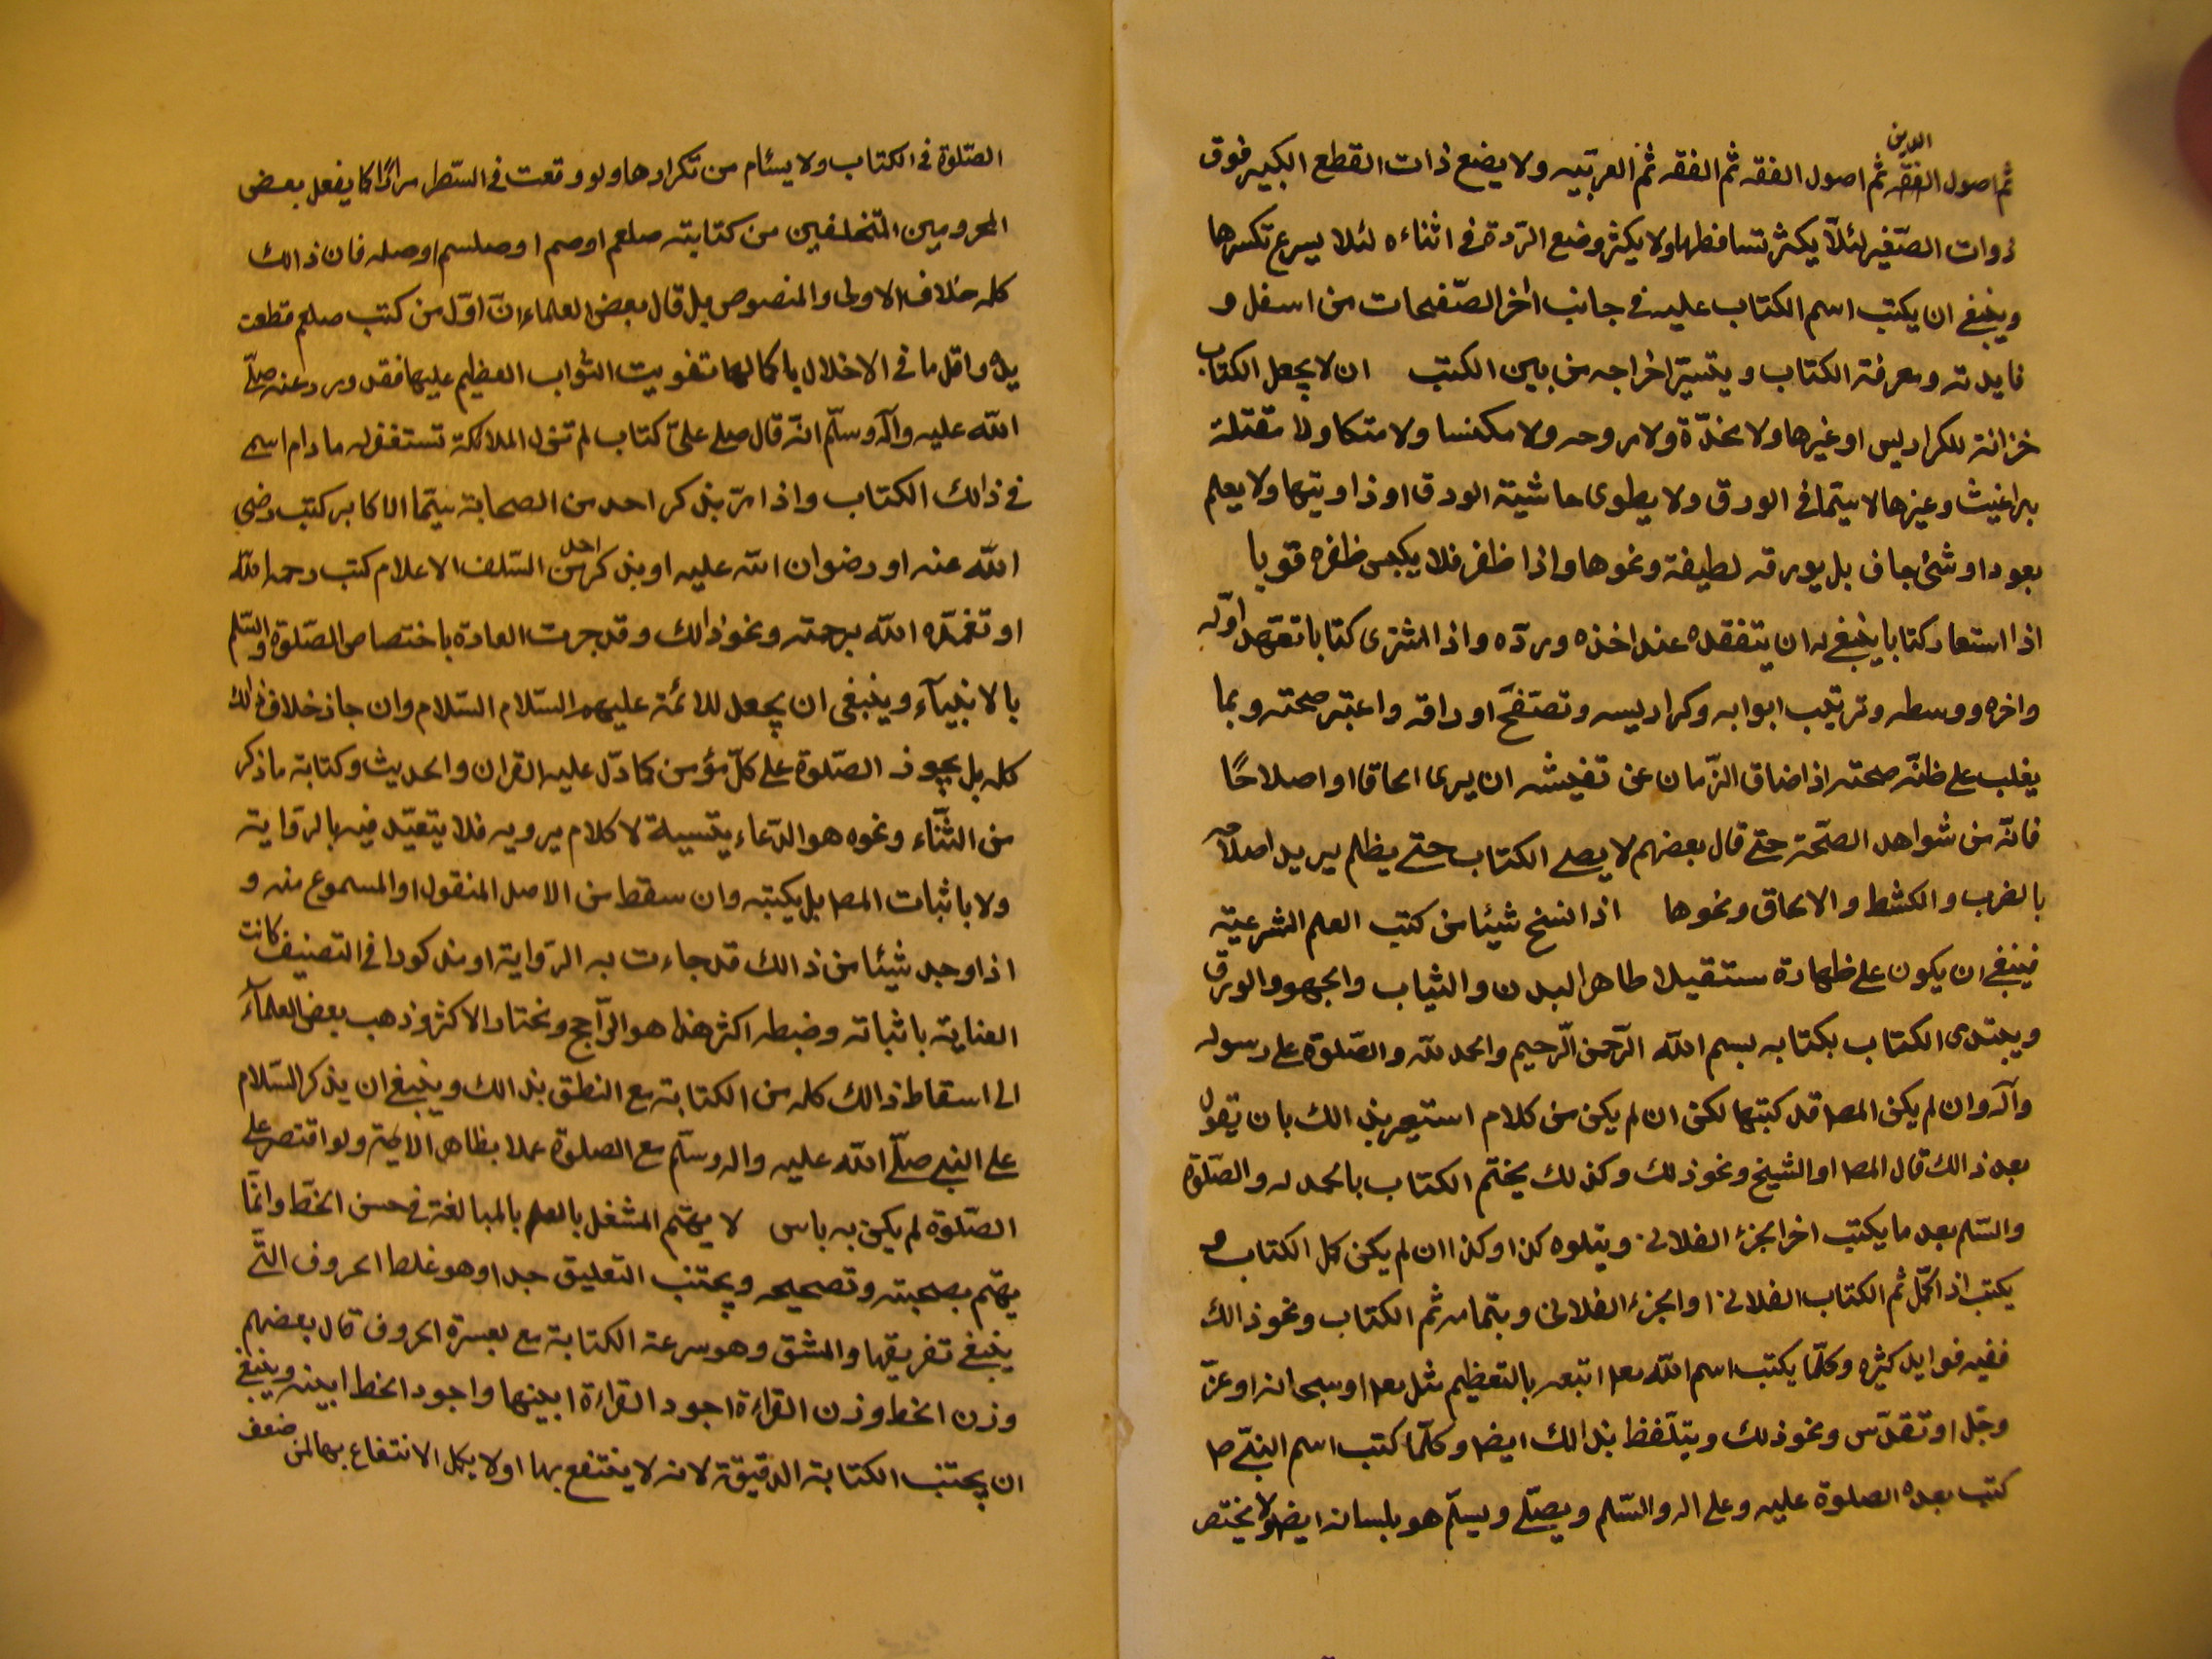 ثم اصول الفقه الدين ثم اصول الفقه ثم الفقه ثم العربيه ولا يضع ذات القطع الكبير فوق
ذوات الصّغير لئلّا يكثر تساقطها ولا يكثر وضع الردة في اثناءه لئلا يسرع تكسرها
وينبغي ان يكتب اسم الكتاب عليه في جانب اخر الصّفحات من اسفل و
فايدته ومعرفة الكتاب ويتسيّر اخراجه من بين الكتب ان لا يجعل الكتاب
خزانة للكراريس او غيرها ولا مخدّة ولا مروحه ولا مكنسا ولا متكا ولا مقتلة
براغيث وغيرها لا سيّما في الورق ولا يطوى حاشية الورق او زاويتها ولا يعلم
بعود او شئ جاف بل بورقه لطيفة ونحوها واذا ظفر فلا يكبس ظفره قويا
اذا استعار كتابا ينبغي له ان يتفقده عند اخذه وردّه واذا اشترى كتابا تعهد اوّله
واخره ووسطه وترتيب ابوابه وكراريسه وتصفّح اوراقه واعتبر صحته وبما
يغلب على ظنّه صحته اذا ضاق الزّمان عن تفيشه ان يرى الحاقا او اصلاحًا
فانّه من شواهد الصّحة حتّى قال بعضهم لا يصلي الكتاب حتى يظلم يريد اصلاحه
بالضرب والكشط والالحاق ونحوها اذا نسخ شيئا من كتب العلم الشرعيّة
فينبغي ان يكون على طهارة ستقبلا طاهر البدن والثياب والجهو والورق
ويبتدى الكتاب بكتابه بسم الله الرّحمن الرّحيم والحمد لله والصّلوة على رسوله
وآله وان لم يكن المص قد كتبها لكن ان لم يكن من كلام استيعر بذالك بان يقول
بعد ذالك قال المص او الشيخ ونحو ذلك وكذلك يختم الكتاب بالحمد له والصّلوة
والسّلم بعد ما يكتب اخر الجزء الفلاني ويتلوه كذا وكذا ان لم يكن كل الكتاب و
يكتب اذا كمّل ثم الكتاب الفلاني او الجزء الفلاني وبتمامه ثم الكتاب ونحو ذالك
ففيه فوايد كثيره وكلّما يكتب اسم الله تعه اتبعه بالتعظيم مثل تعه او سبحانه او عزّ
وجل او تقدّس ونحو ذلك ويتلّفظ بذالك ايضا وكلّما كتب اسم النبّي ص
كتب بعده الصلوة عليه وعلى اله والسّلم ويصلّي ويسلّم هو بلسانه ايضا ولا يختصر
الصّلوة في الكتاب ولا يسئام من تكرارها ولو وقعت في السّطر مرارًا كما يفعل بعض
المحرومين المتخلفين من كتابته صلعم او صم او صلسم او صله فان ذالك
كله خلاف الاولى والمنصوص بل قال بعض العلماء انّ اوّل من كتب صلعم قطعت
يده واقل ما في الاخلال باكمالها تفويت الثّواب العظيم عليها فقد ورد عنه صلّى
الله عليه وآله وسلّم انّه قال صلى علىّ كتاب لم تزل الملائكة تستغفر له ما دام اسمى
في ذالك الكتاب واذا مرّ بذكر احد من الصحابة سيّما الاكابر كتب رضى
الله عنه او رضوان الله عليه او بذكر احد من السّلف الاعلام كتب رحمه الله
او تغمّده الله برحمته ونحو ذالك وقد جرت العادة باختصاص الصّلوة والسّلم
بالانبيآء وينبغي ان يجعل للائمة عليهم السّلام السّلام وان جاز خلاف ذلك
كله بل يجوز الصّلوة على كلّ مؤمن كما دلّ عليه القران والحديث وكتابة ما ذكر
من الثّناء ونحوه هو الدّعاء يتسيلة لا كلام يرويه فلا يتقيّد فيه بالرّواية
ولا باثبات المص بل يكتبه وان سقط من الاصل المنقول او المسموع منه و
اذا وجد شيئا من ذالك قد جاءت به الرّواية او مذكورا في التصنيف كانت
العناية باثباته وضبطه اكثر هذا هو الرّاجح ونختار الاكثر وذهب بعض العلمآء
الى اسقاط ذالك كله من الكتابة مع النطق بذالك وينبغي ان يذكر السّلام
على النبي صلّى الله عليه واله وسلّم مع الصلوة عملا بظاهر الاية ولو اقتصر على
الصّلوة لم يكن به باس لا يهتم المشغل بالعلم بالمبالغة في حسن الخطّ وانّما
يهتم بصحبته وتصحيحه ويجتنب التعليق جدا وهو غلط الحروف التّى
ينبغي تفريقها والمشق وهو سرعة الكتابة مع بعسرة الحروف قال بعضهم
وزن الخط وزن القراءة اجود القراءة ابينها واجود الخط ابينه وينبغي
ان يجتنب الكتابة الدقيقة لانه لا ينتفع بها او لا يكمل الانتفاع بها لمن ضعف